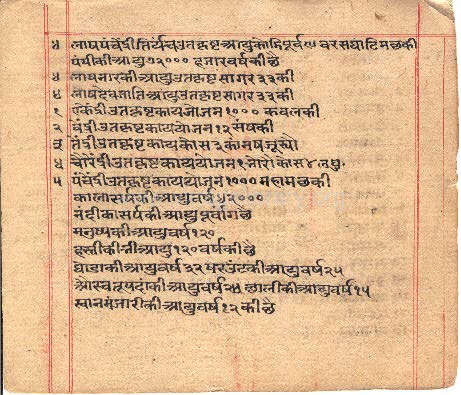 ४ लाषपंचेंद्रीतिर्यंचउतकृष्टआयुकोडिपूर्व वरसषाटिमछकी
पंषीकीआयु७२००० हजारवर्षकीछै
४ लाषनारकीआयुउतकृष्टसागर३३की
४ लाषदेवजातिआयुउतकृष्टसागर३३की
१ एकेंद्रीउतकृष्टकायजोजन१००० कवलकी
२ बेंद्रीउतकृष्टकाययोजन१२ संषकी
३ तेंद्रीउतकृष्टकायकोस३
४ चोरेंद्रीउतकृष्टकाययोजन१ कोस४
५ पंचेंद्रीउतकृष्टकाययोजन१००० महामछकी
कालासर्पकीआयुवर्ष४२०००
आयुपूर्वांगछै
मनुष्यकीआयुवर्ष१२०
हस्तीकीआयु१२०वर्षकीछै
घोडाकीआयुवर्ष३२ षरउंटकीआयुवर्ष२५
आयुवर्ष२४ छालीकीआयुवर्ष१५
स्वानमंजारीकीआयुवर्ष१२कीछै